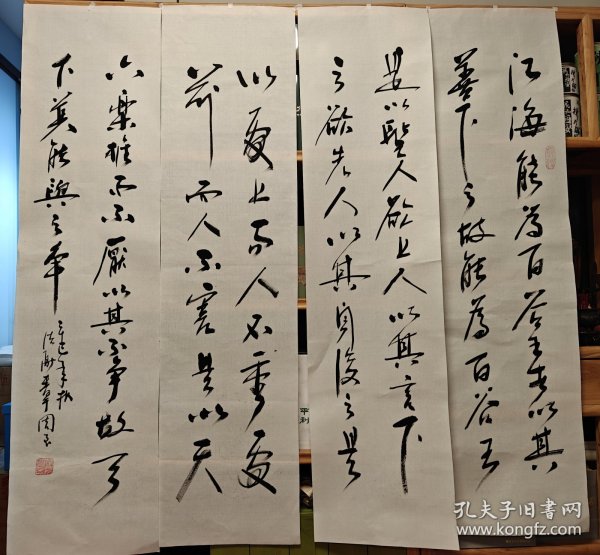 江海能為百谷王者以其
善下之故能為百谷王
是以聖人欲上人以其言下
之欲先人以其身後之是
以處上而人不重處
前而人不害是以天
下樂推而不厭以其不爭故天
下莫能與之爭
孔夫子旧书网
www.kongfz.com